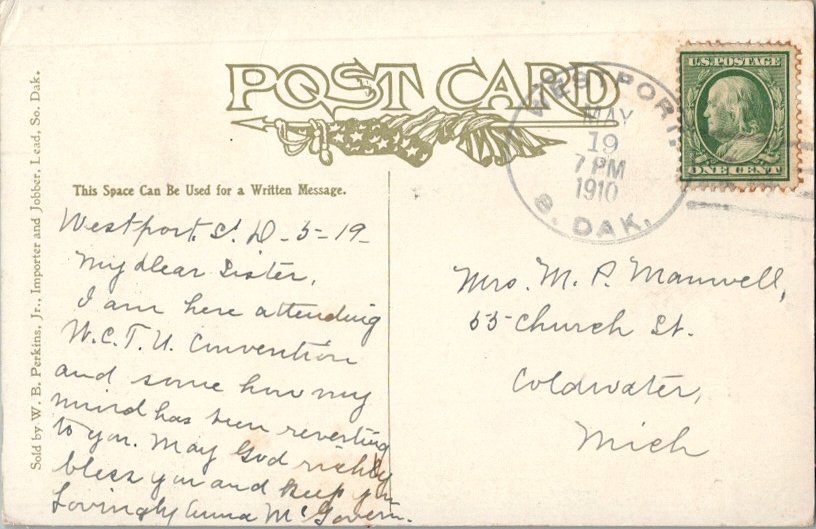 POST CARD
U.S.POSTAGE
ONE CENT
WESTPORT.
MAY
19
7 PM
1910
S. DAK.
Sold by W. E. Perkins, Jr., Importer and Jobber, Lead, So. Dak.
This Space Can Be Used for a Written Message.
Westport, S. D - 5 - 19 -
My dear Sister,
I am here attending
W.C.T.U. Convention
and some how my
mind has been reverting
to you. May God richly
bless you and keep you
Lovingly Anna McGovern.
Mrs. M. P. Manwell,
55 Church St.
Coldwater,
Mich